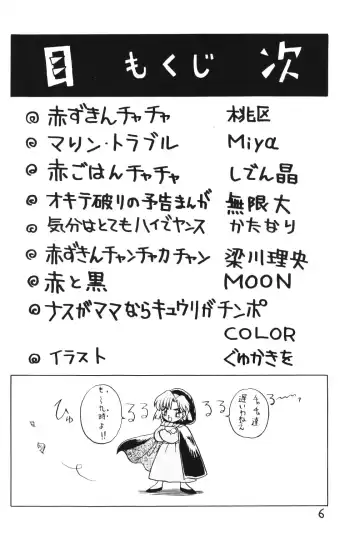 目 もくじ 次
赤ずきんチャチャ 桃区
マリン・トラブル Miya
赤ごはんチャチャ しでん晶
オキテ破りの予告まんが 無限大
気分はとてもハイでヤンス かたなり
赤ずきんチャンチャカチャン 梁川理央
赤と黒 MOON
ナスがママならキュウリがチンポ
COLOR
イラスト ぐゆかきを
チャチャ達
遅いわねえ
も〜九時よ!!
ひゅ
るる
るる
る〜
6